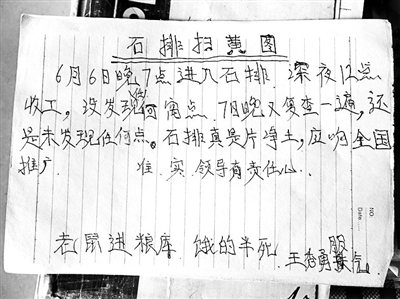 石排扫黄图
6月6日晚7点进入石排. 深夜12点
收工, 没发现任何窝点 7日晚又复查一遍, 还
是未发现任何点。石排真是片净土, 应响全国
推广 准. 实. 领导有责任心..
老鼠进粮库 饿的半死
王杏勇服
NO.
Date